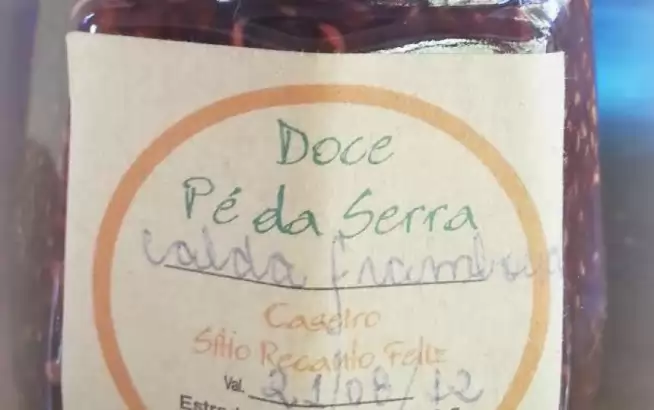 Doce
Pé da Serra
calda framboesa
Caseiro
Sítio Recanto Feliz
Val. 21/08/12